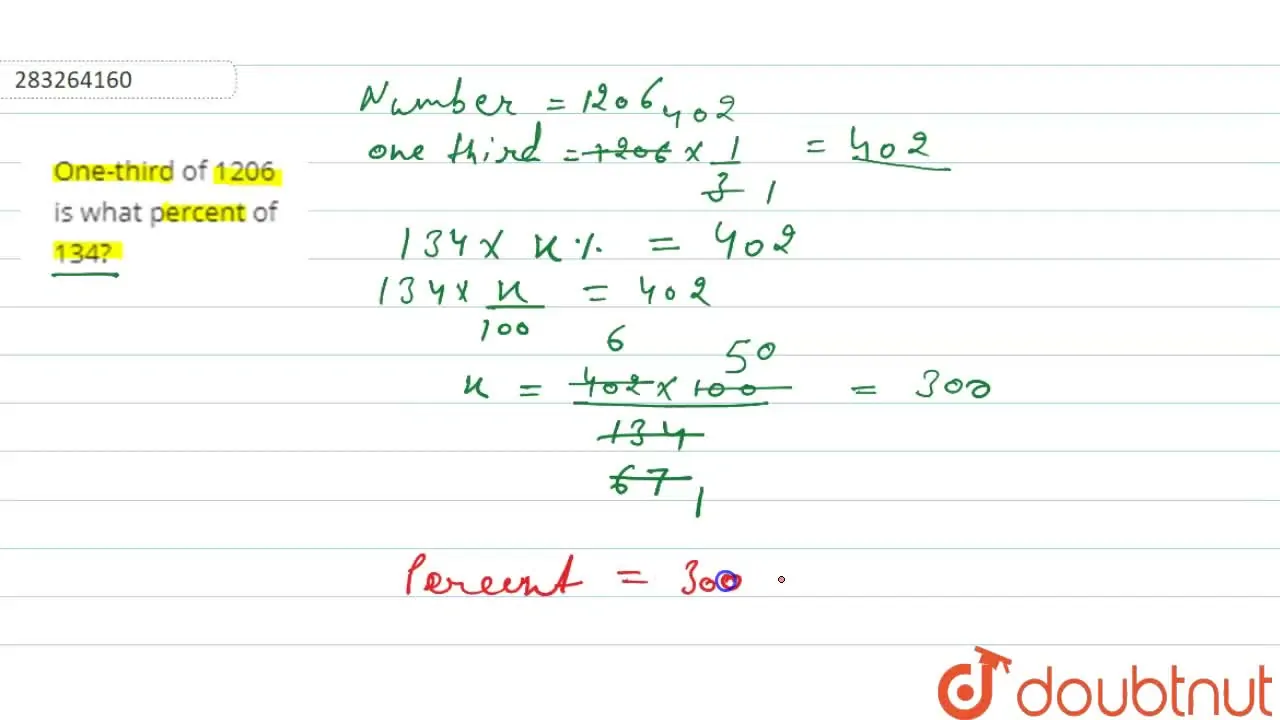 283264160
One-third of 1206
is what percent of
134?
Number = 1206
402
one third = 1206 × 1/3 = 402
1
134 × x % = 402
134 × x/100 = 402
6 50
x = 402 × 100 = 300
134
67
1
Percent = 300
doubtnut